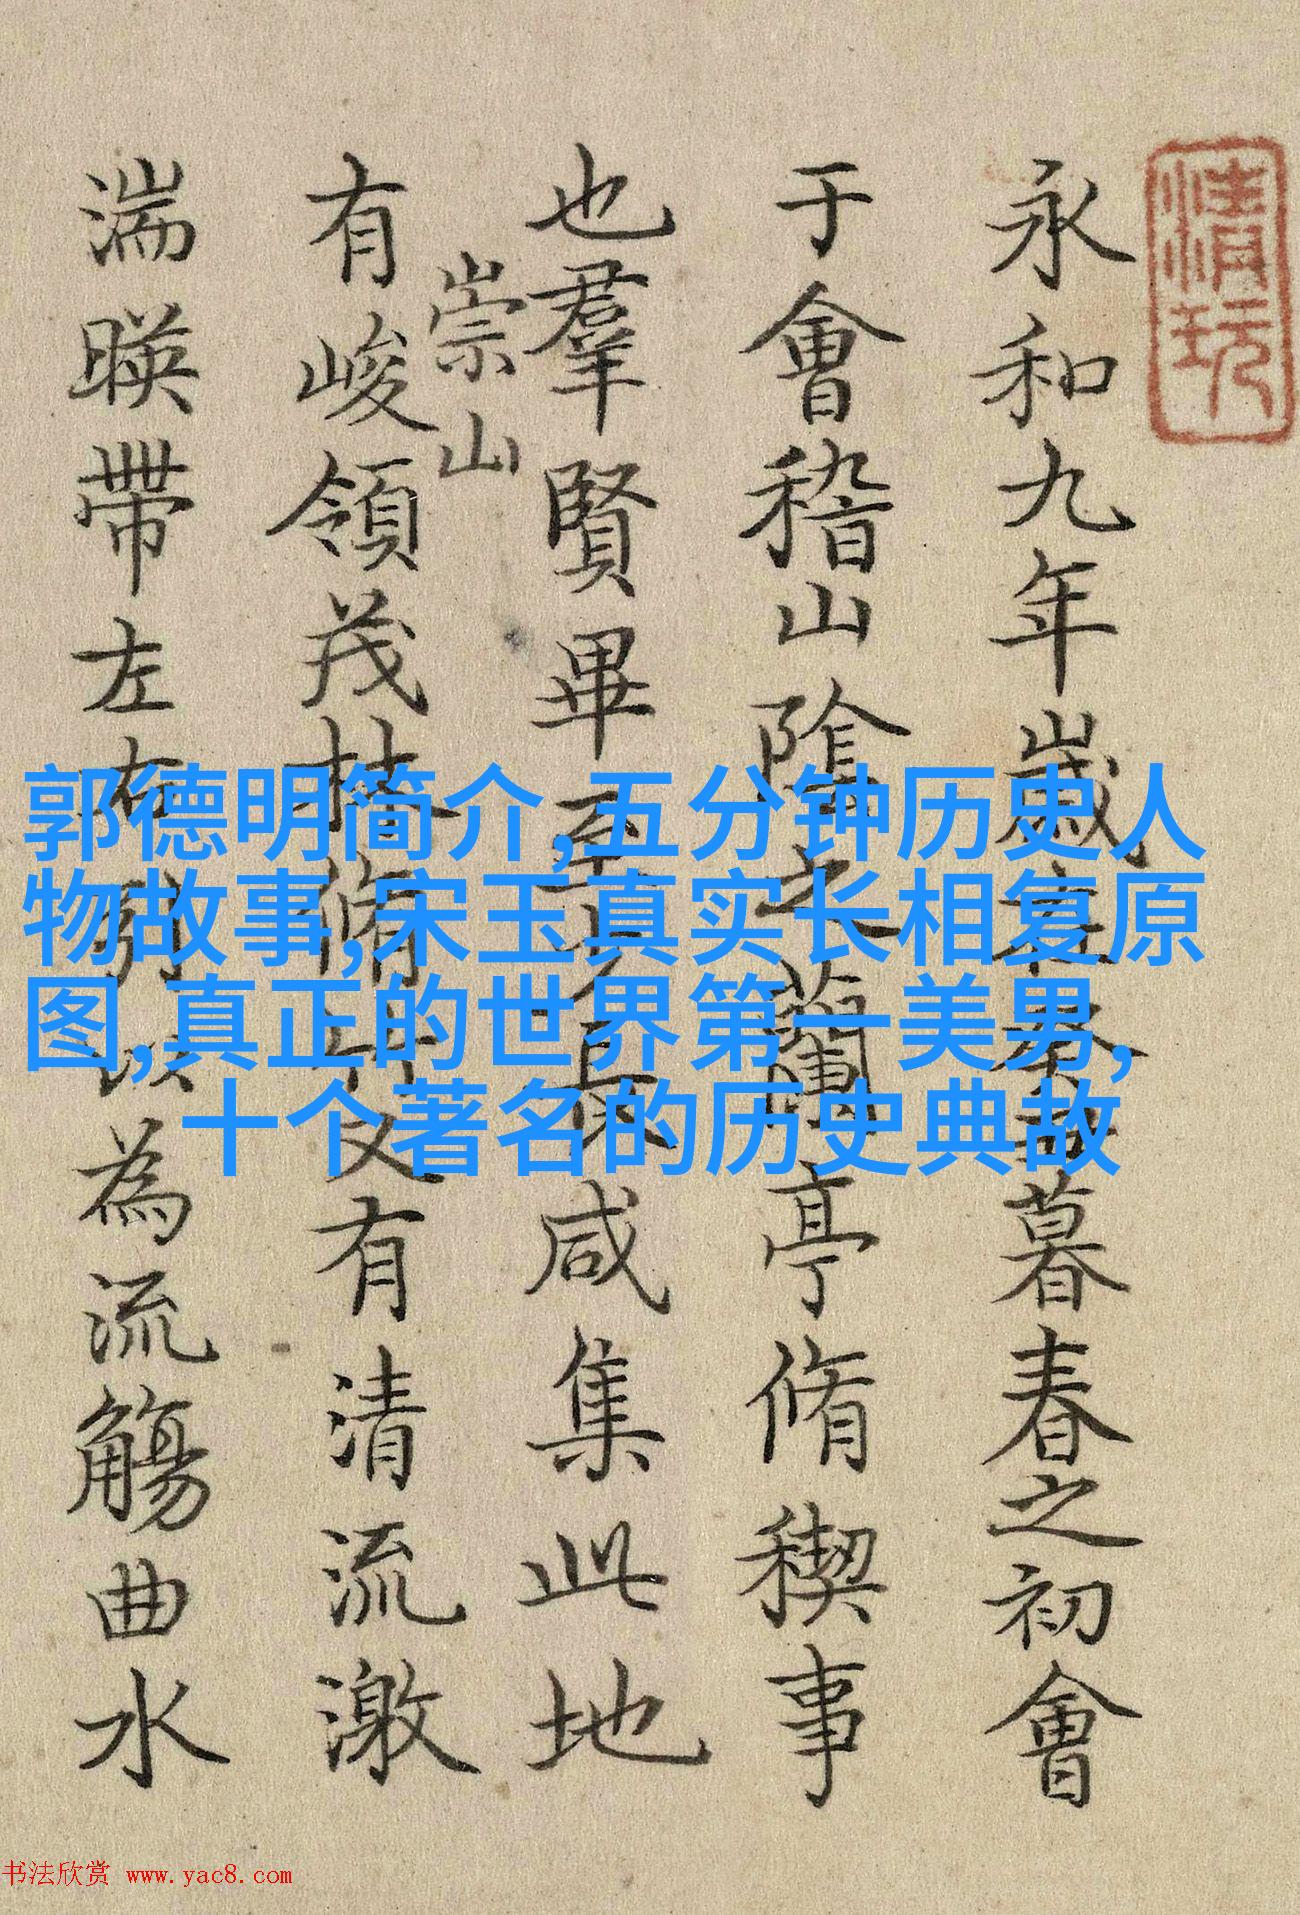 清玩
永和九年歲在癸丑暮春之初會
于會稽山陰之蘭亭脩稧事
也羣賢畢至少長咸集此地
崇山
有峻領茂林脩竹又有清流激
湍暎帶左右引以為流觴曲水
郭德明简介,五分钟历史人
物故事,宋玉真实长相复原
图,真正的世界第一美男,
十个著名的历史典故
书法欣赏 www.yac8.com